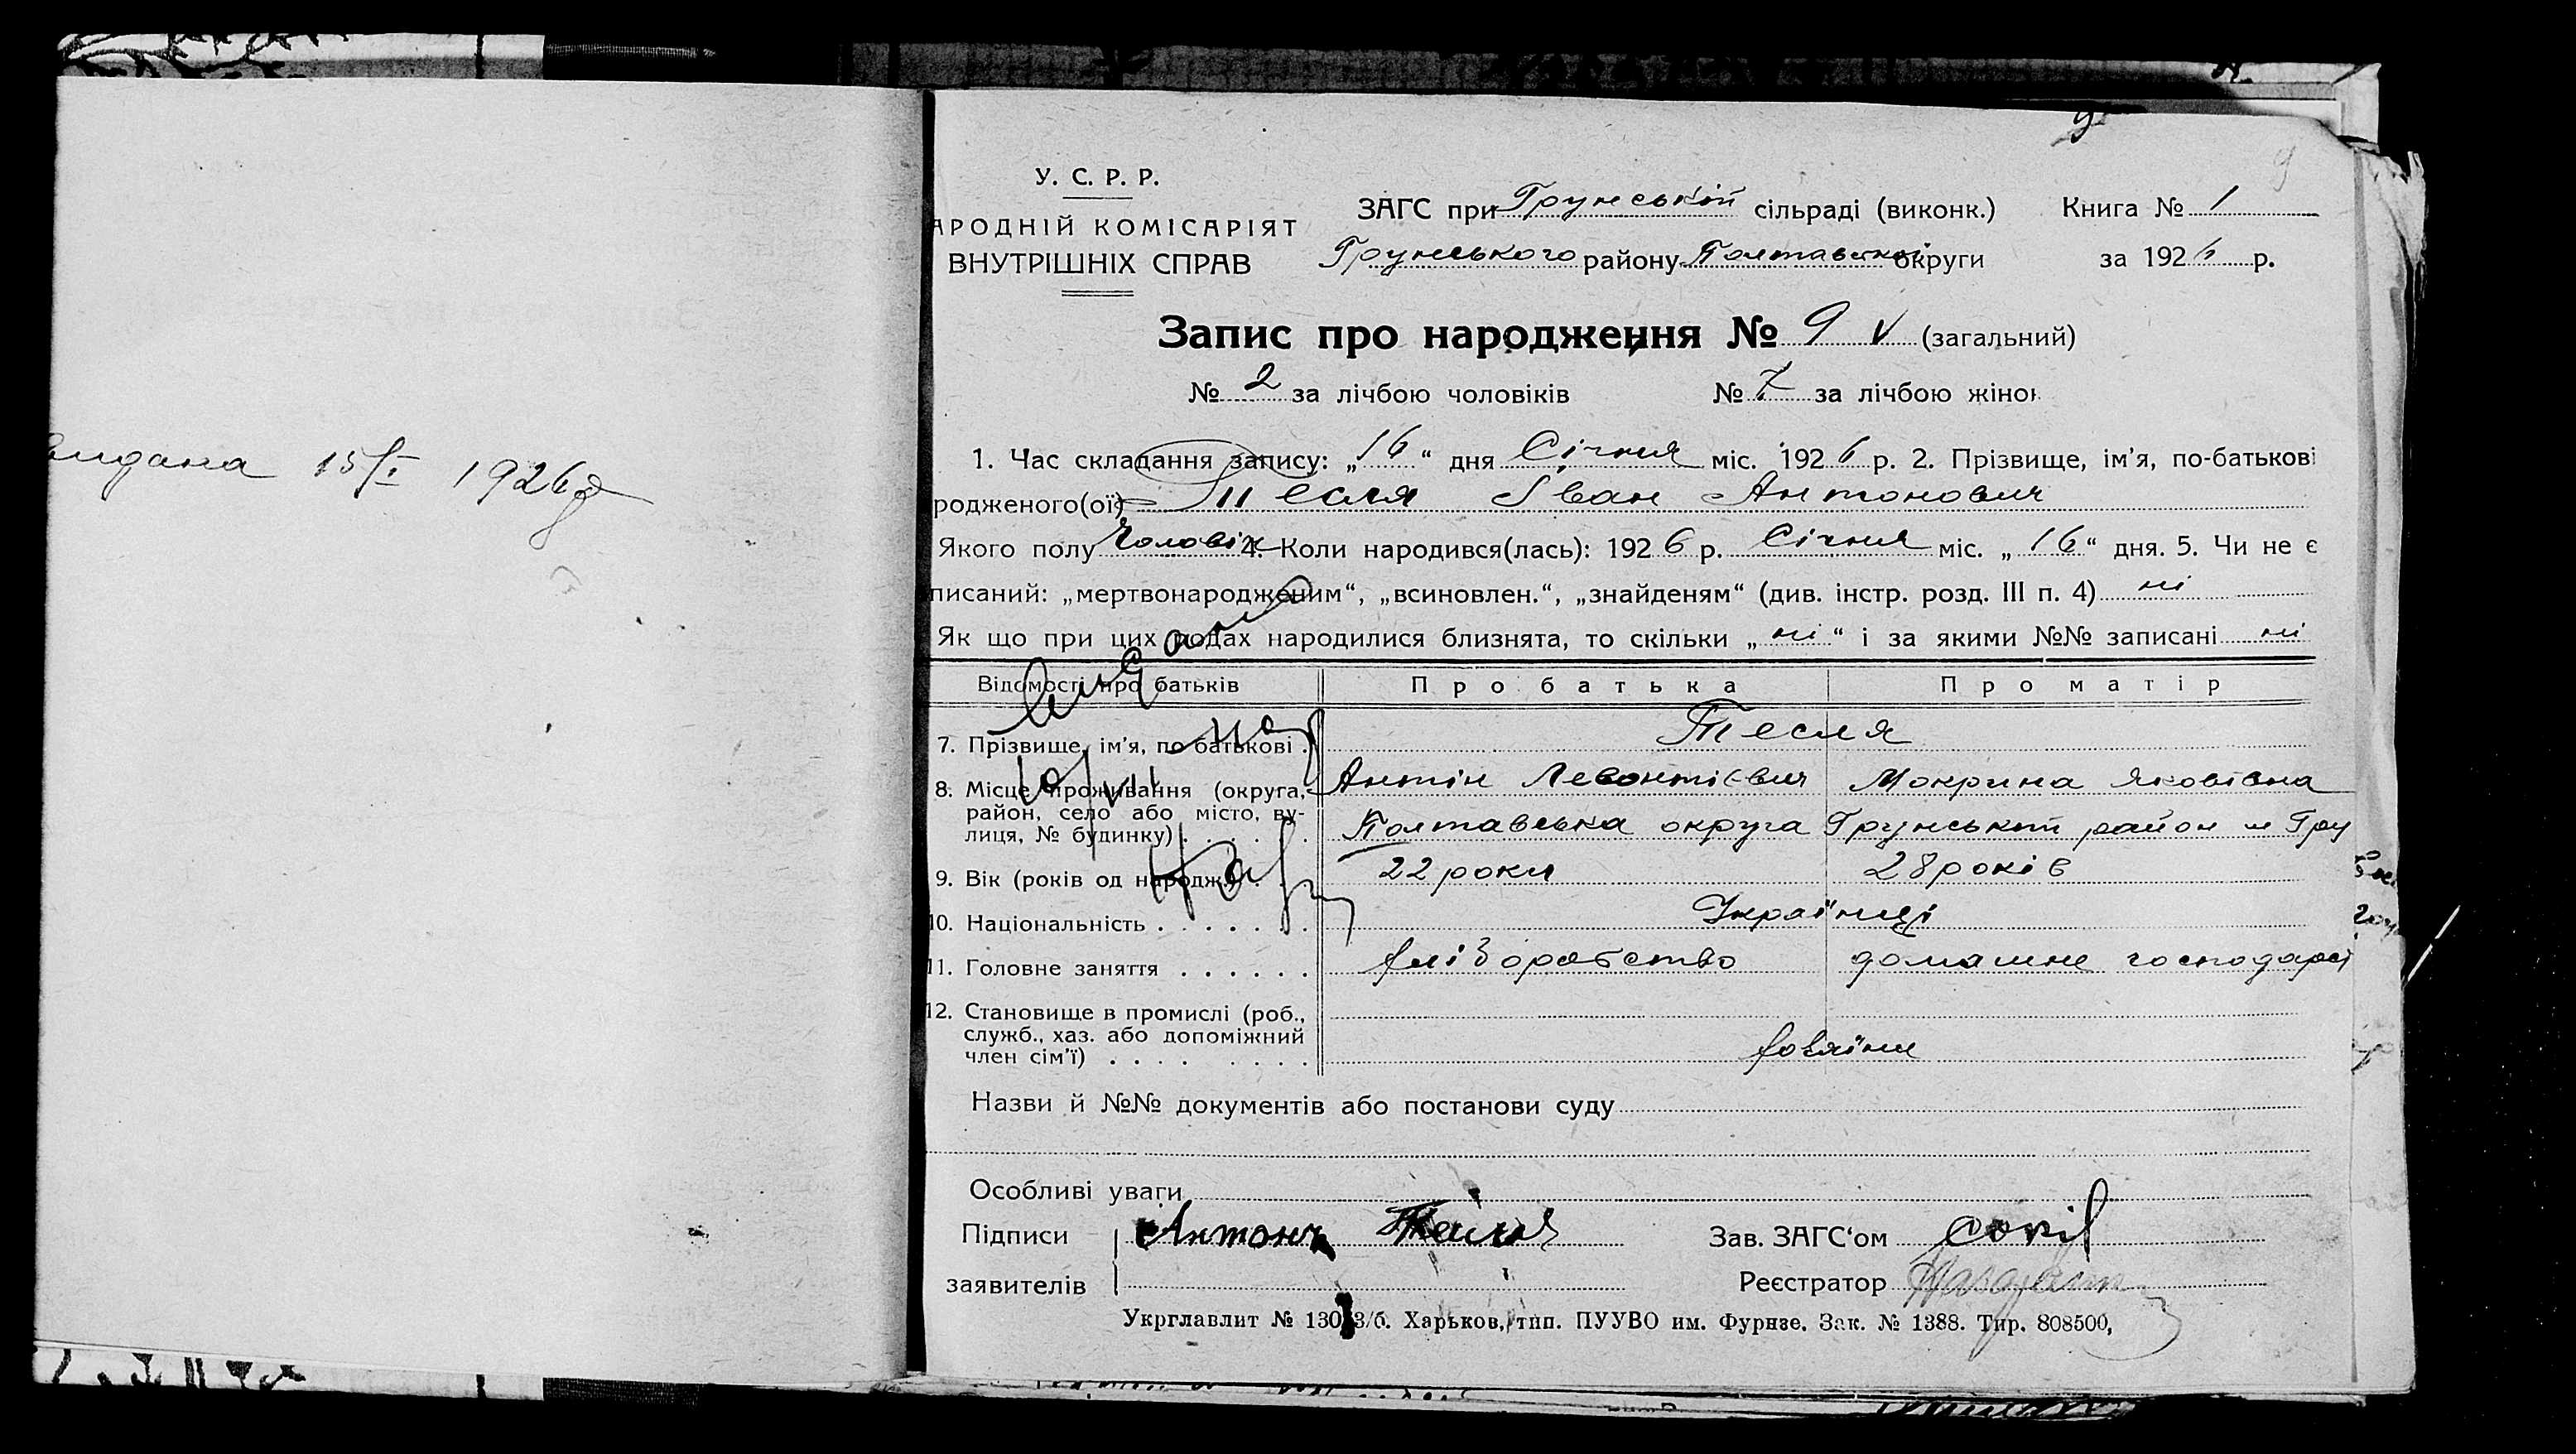 9
видана 15/I 1926 р
У. С. Р. Р.
АРОДНІЙ КОМІСАРІЯТ
ВНУТРІШНІХ СПРАВ
ЗАГС при Грунській сільраді (виконк.) Книга № 1
Грунського району Полтавської округи за 1926 р.
Запис про народження № 9 V (загальний)
№ 2 за лічбою чоловіків № 7 за лічбою жінок
1. Час складання запису: „16“ дня Січня міс. 1926 р. 2. Прізвище, ім'я, по-батькові
родженого(ої) Тесля Іван Антонович
Якого полу Чоловік 4. Коли народився(лась): 1926 р. Січня міс. „16“ дня. 5. Чи не є
писаний: „мертвонародженим“, „всиновлен.“, „знайденям“ (див. інстр. розд. III п. 4) ні
Як що при цих родах народилися близнята, то скільки „ні“ і за якими №№ записані ні
Відомості про батьків Про батька Про матір
7. Прізвище, ім'я, по батькові . Тесля
Антін Левонтієвич Мокрина Яковівна
8. Місце проживання (округа,
район, село або місто, ву-
лиця, № будинку) . . . . Полтавська округа Грунський район м Гру
9. Вік (років од народж.) . . . 22 роки 28 років
10. Національність . . . . . . . Українці
11. Головне заняття . . . . . . хліборобство домашнє господарст
12. Становище в промислі (роб.,
служб., хаз. або допоміжний
член сім'ї) . . . . . . . . хазяїни
Назви й №№ документів або постанови суду
Особливі уваги
Підписи Антонъ Тесля Зав. ЗАГС'ом Сокіл
заявителів Реєстратор
Укрглавлит № 130 3/б. Харьков, тип. ПУУВО им. Фрунзе. Зак. № 1388. Тир. 808500,